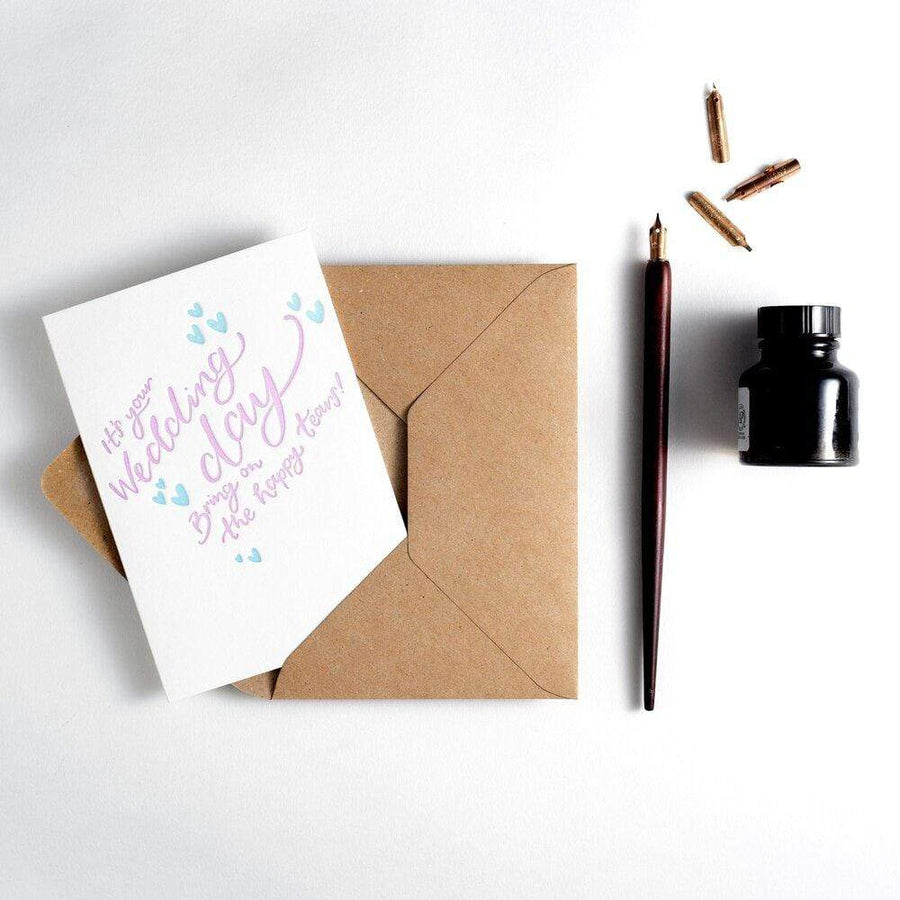 It's your
Wedding
day
Bring on
the happy tears!